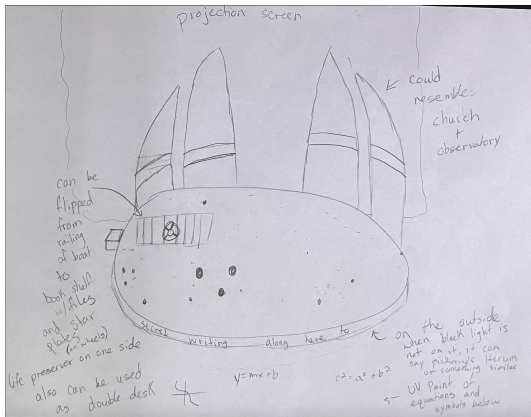 projection screen
could
resemble
church
+
observatory
can be
flipped
from
railing
of boat
to
book shelf
w/ files
and star
plates (on wheels)
life preserver on one side
also can be used
as double desk
secret writing along here to
on the outside
when black light is
not on it, it can
say Pickering's Harem
or something similar
UV Paint of
equations and
symbols below
y=mx+b
c²=a²+b²